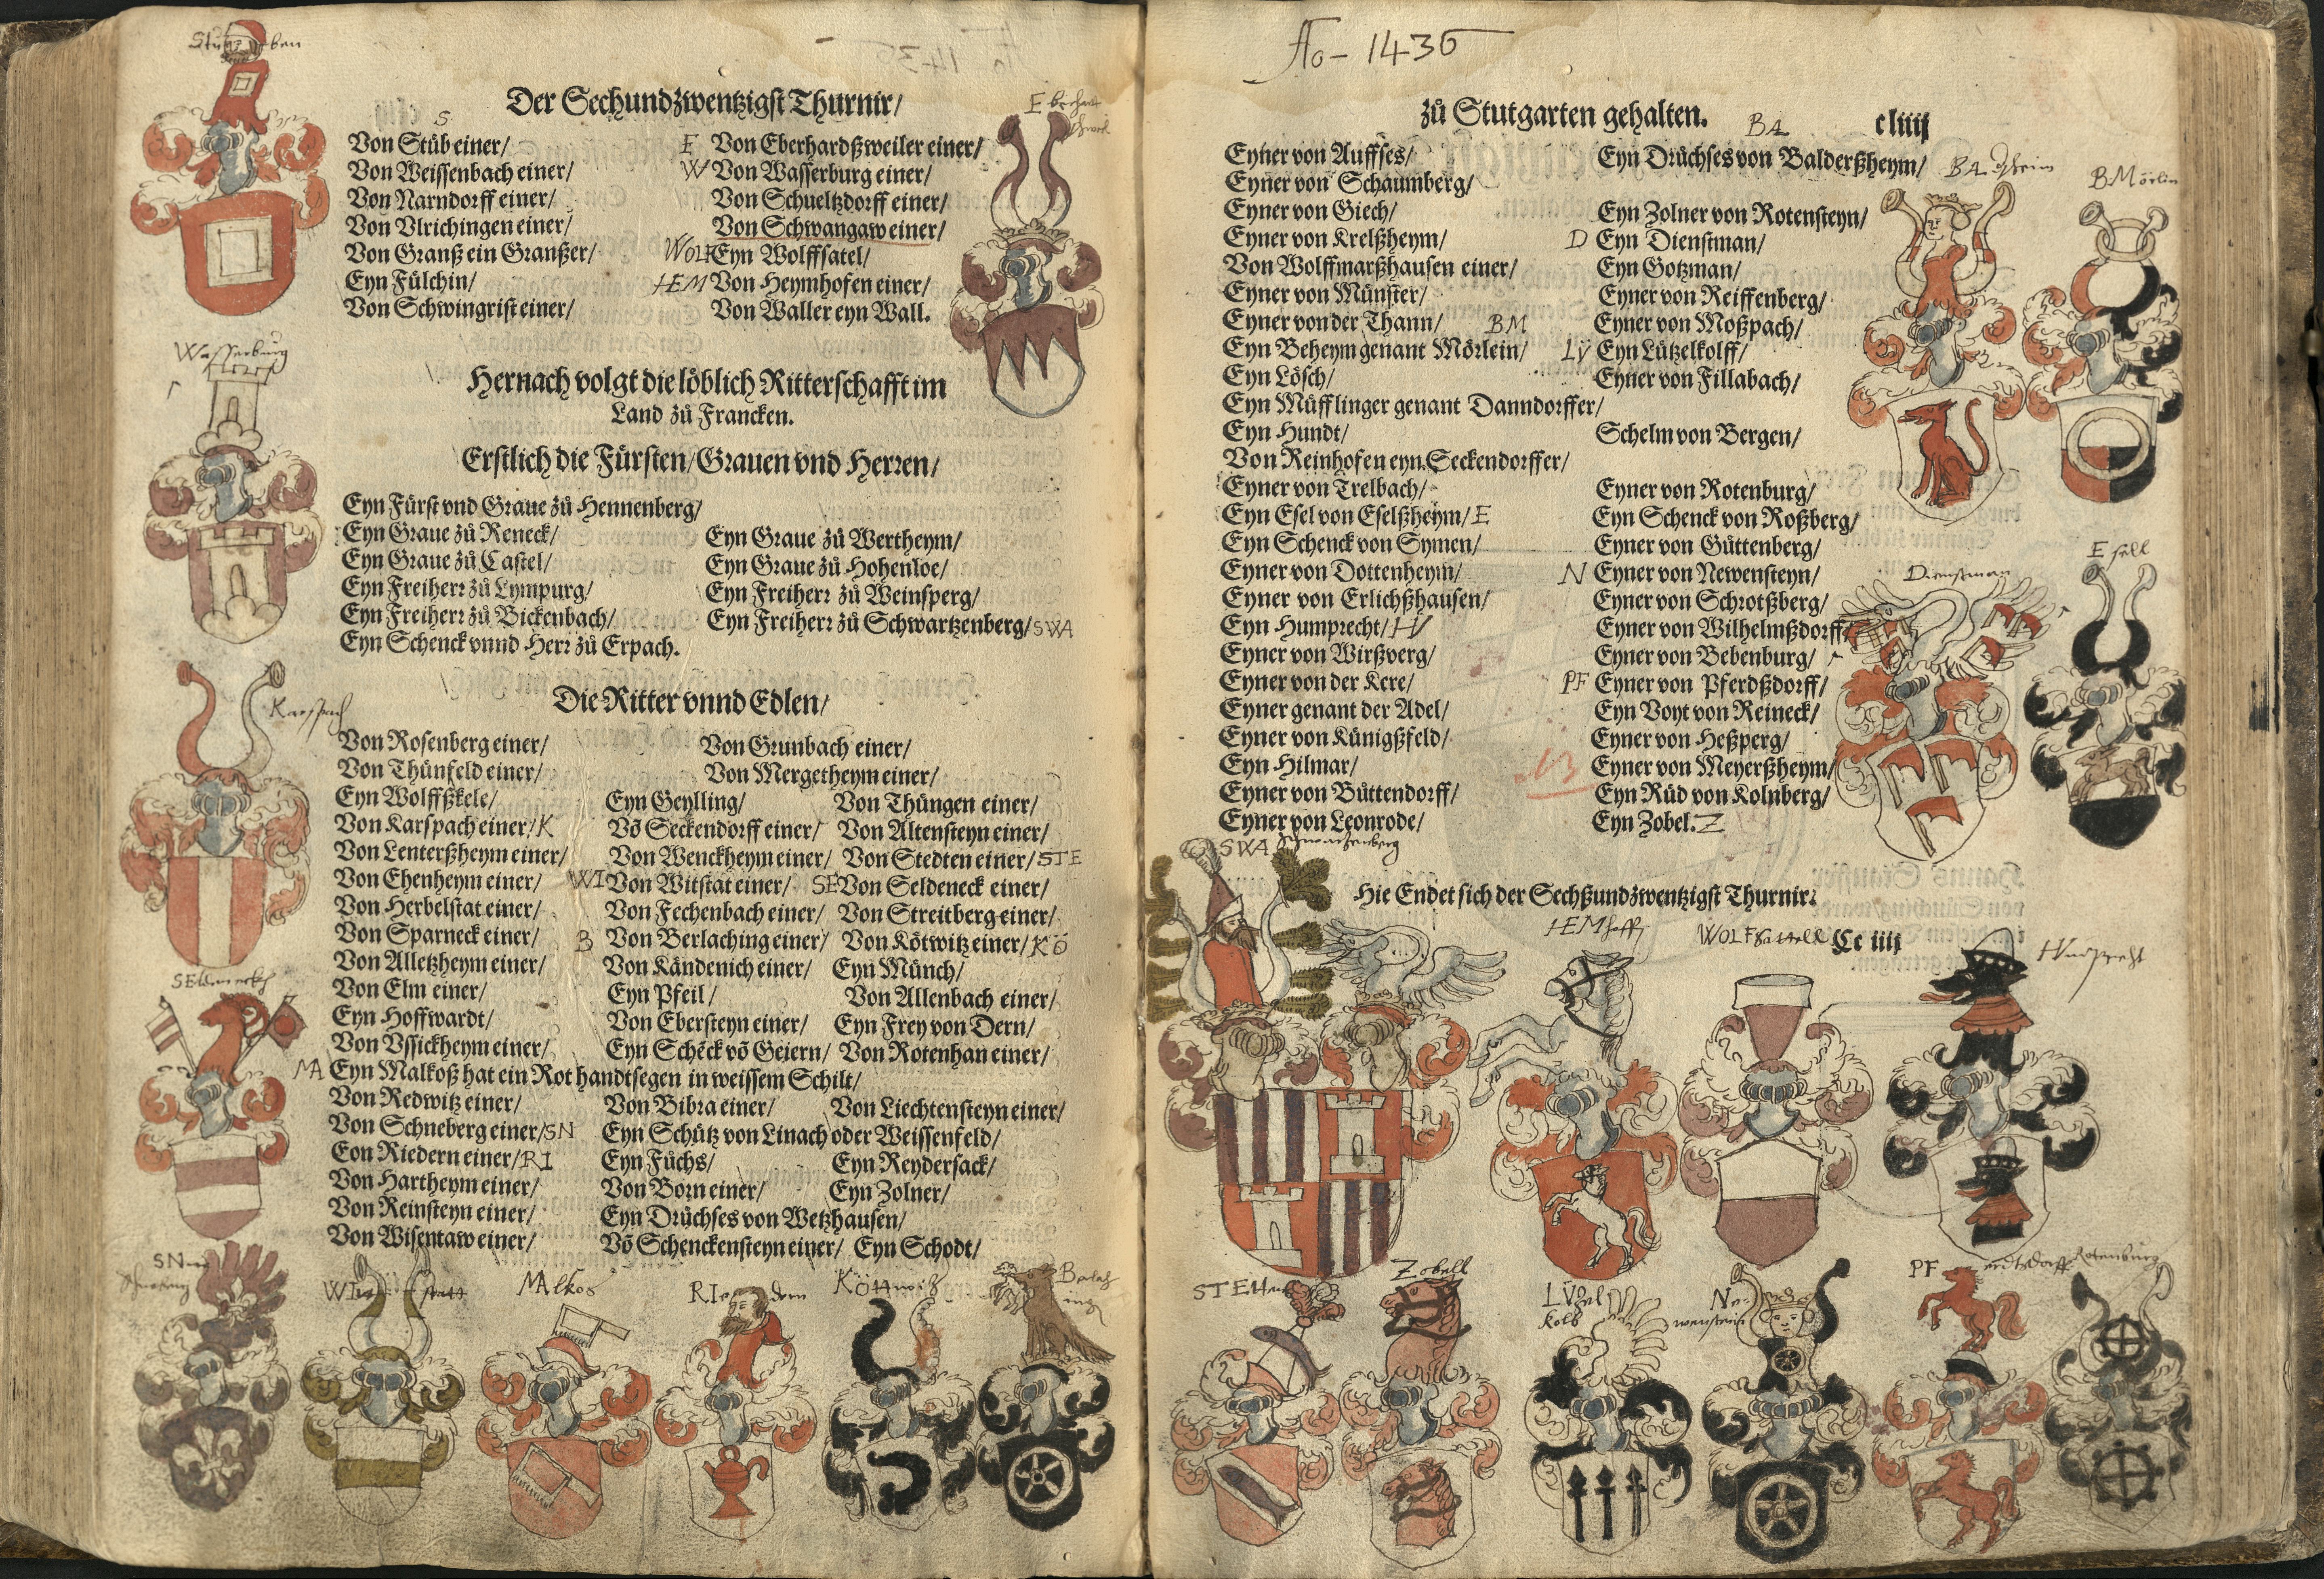 Stu ben
Der Sechundzwentzigst Thurnir/
S
Von Stüb einer/
Von Weissenbach einer/
Von Narndorff einer/
Von Vlrichingen einer/
Von Granß ein Granßer/
Eyn Fülchin/
Von Schwingrist einer/
E Von Eberhardßweiler einer/
W Von Wasserburg einer/
Von Schueltzdorff einer/
Von Schwangaw einer/
WOLF Eyn Wolffsatel/
HEM Von Heymhofen einer/
Von Waller eyn Wall.
Wasserburg
Hernach volgt die löblich Ritterschafft im
Land zů Francken.
Erstlich die Fürsten/Grauen vnd Herren/
Eyn Fürst vnd Graue zů Hennenberg/
Eyn Graue zů Reneck/
Eyn Graue zů Castel/
Eyn Freiherr zů Lympurg/
Eyn Freiherr zů Bickenbach/
Eyn Schenck vnnd Herr zů Erpach.
Eyn Graue zů Wertheym/
Eyn Graue zů Hohenloe/
Eyn Freiherr zů Weinsperg/
Eyn Freiherr zů Schwartzenberg/ SWA
Karspach
Die Ritter vnnd Edlen/
Von Rosenberg einer/ Von Grunbach einer/
Von Thünfeld einer/ Von Mergetheym einer/
Eyn Wolffßkele/ Eyn Geylling/ Von Thüngen einer/
Von Karspach einer/ K Võ Seckendorff einer/ Von Altensteyn einer/
Von Lenterßheym einer/ Von Wenckheym einer/ Von Stedten einer/ STE
Von Ehenheym einer/ WI Von Witstat einer/ SE Von Seldeneck einer/
Von Herbelstat einer/ Von Fechenbach einer/ Von Streitberg einer/
Von Sparneck einer/ B Von Berlaching einer/ Von Kötwitz einer/ KÖ
Von Alletzheym einer/ Von Kändenich einer/ Eyn Münch/
Von Elm einer/ Eyn Pfeil/ Von Allenbach einer/
Eyn Hoffwardt/ Von Ebersteyn einer/ Eyn Frey von Dern/
Von Vssickheym einer/ Eyn Schẽck võ Geiern/ Von Rotenhan einer/
MA Eyn Malkoß hat ein Rot handtsegen in weissem Schilt/
Von Redwitz einer/ Von Bibra einer/ Von Liechtensteyn einer/
Von Schneberg einer/ SN Eyn Schütz von Linach oder Weissenfeld/
Eon Riedern einer/ RI Eyn Füchs/ Eyn Reydersack/
Von Hartheym einer/ Von Born einer/ Eyn Zolner/
Von Reinsteyn einer/ Eyn Drüchses von Wetzhausen/
Von Wisentaw einer/ Võ Schenckensteyn einer/ Eyn Schodt/
SN
WI statt
MAlkos
RIe dern
KÖttwitz
Berlaching
Ao – 1436
zů Stutgarten gehalten. cliiij
BA
Eyner von Auffses/
Eyner von Schaumberg/
Eyner von Giech/
Eyner von Krelßheym/
Von Wolffmarßhausen einer/
Eyner von Münster/
Eyner von der Thann/ BM
Eyn Beheym genant Mörlein/
Eyn Lösch/
Eyn Müfflinger genant Danndorffer/
Eyn Hundt/
Von Reinhofen eyn Seckendorffer/
Eyner von Trelbach/
Eyn Esel von Eselßheym/ E
Eyn Schenck von Symen/
Eyner von Dottenheym/
Eyner von Erlichßhausen/
Eyn Humprecht/ HV
Eyner von Wirßberg/
Eyner von der Kere/
Eyner genant der Adel/
Eyner von Künigßfeld/
Eyn Hilmar/
Eyner von Büttendorff/
Eyner von Leonrode/
Eyn Drüchses von Balderßheym/
Eyn Zolner von Rotensteyn/
D Eyn Dienstman/
Eyn Gotzman/
Eyner von Reiffenberg/
Eyner von Moßpach/
LV Eyn Lützelkolff/
Eyner von Fillabach/
Schelm von Bergen/
Eyner von Rotenburg/
Eyn Schenck von Roßberg/
Eyner von Güttenberg/
N Eyner von Newensteyn/
Eyner von Schrotßberg/
Eyner von Wilhelmßdorff/
Eyner von Bebenburg/
PF Eyner von Pferdßdorff/
Eyn Voyt von Reineck/
Eyner von Heßperg/
Eyner von Meyerßheym/
Eyn Rüd von Kolnberg/
Eyn Zobel. Z
BMörlin
Dienstman
Esell
SWA Schwartzenberg
Hie Endet sich der Sechßundzwentzigst Thurnir.
HEMhoff
WOLFSattell
Cc iiij
HVmprecht
STEtt
Zobehl
LVzelkolb
Newenstein
PF erdtsdorff
Rotenburg